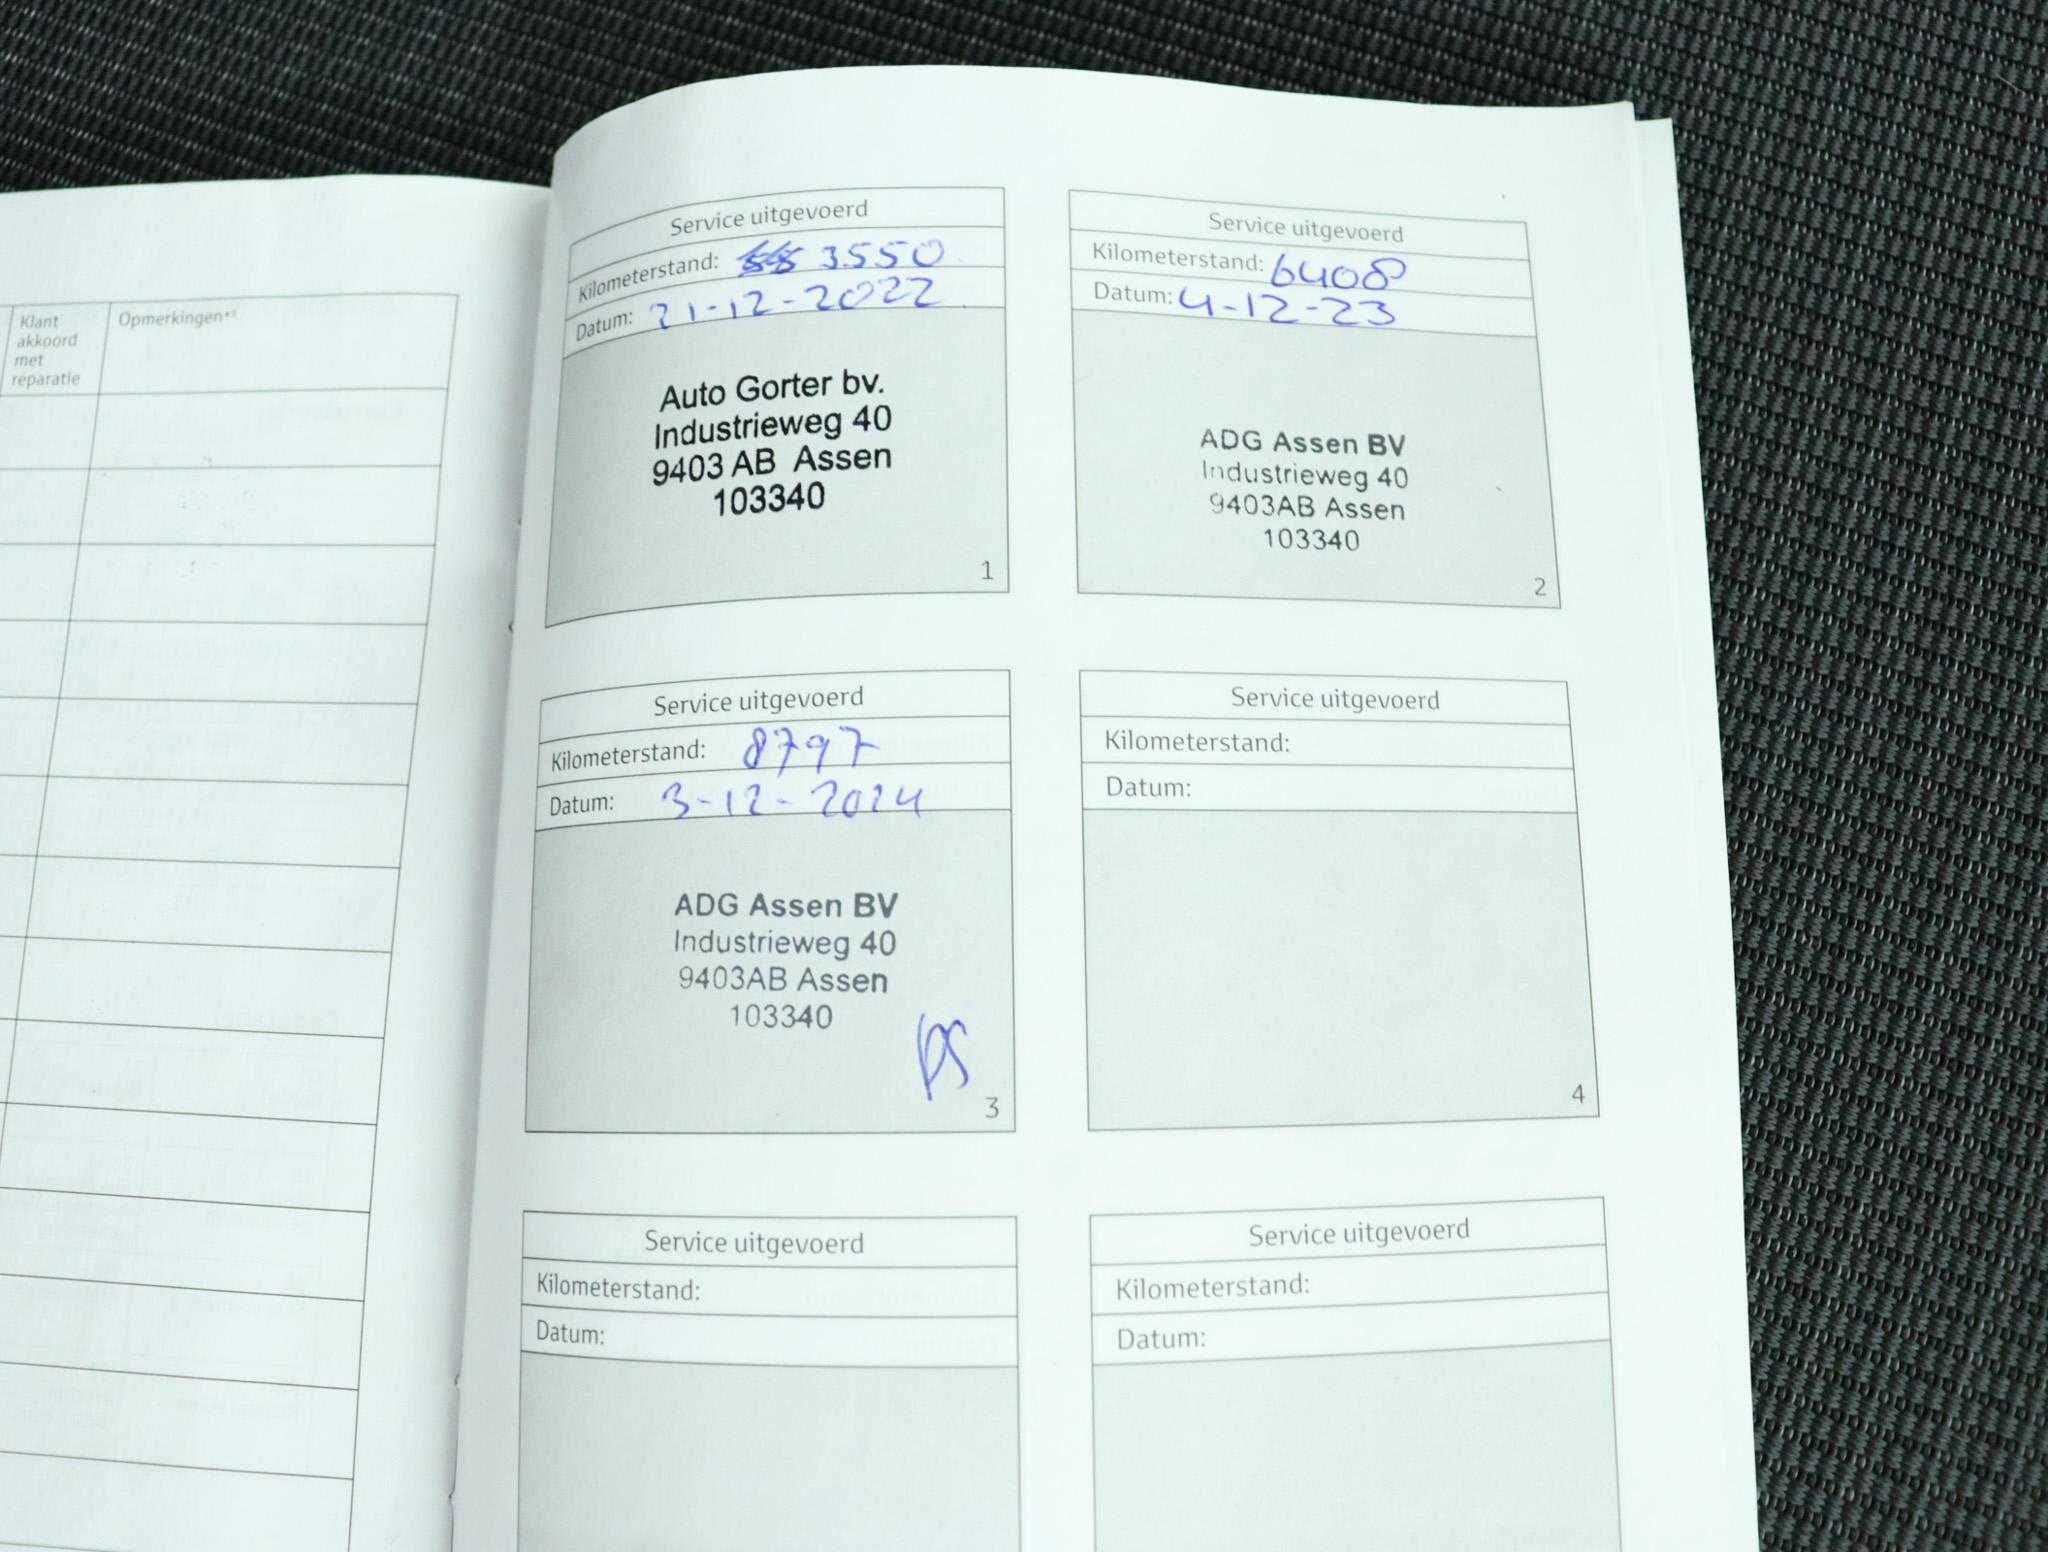 Klant
akkoord
met
reparatie
Opmerkingen*¹
Service uitgevoerd
Kilometerstand: 3550
Datum: 21-12-2022
Auto Gorter bv.
Industrieweg 40
9403 AB Assen
103340
1
Service uitgevoerd
Kilometerstand: 6408
Datum: 4-12-23
ADG Assen BV
Industrieweg 40
9403AB Assen
103340
2
Service uitgevoerd
Kilometerstand: 8797
Datum: 3-12-2024
ADG Assen BV
Industrieweg 40
9403AB Assen
103340
3
Service uitgevoerd
Kilometerstand:
Datum:
4
Service uitgevoerd
Kilometerstand:
Datum:
Service uitgevoerd
Kilometerstand:
Datum: